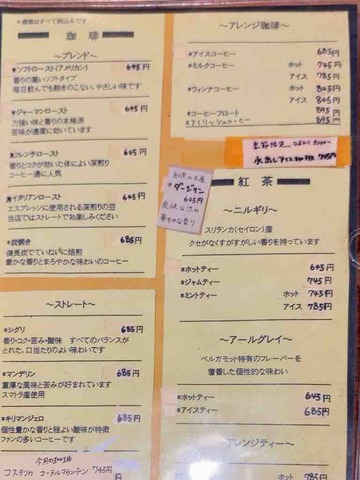 *価格はすべて税込みです
珈琲
〜ブレンド〜
*ソフトロースト(アメリカン) 645円
香りの高いソフトタイプ
毎日飲んでも飽きのこない、やさしい味です
*ジャーマンロースト 645円
力強い味と香りの本格派
苦味が適度に効いています
*フレンチロースト 645円
香りとコクが効いた体によい深煎り
コーヒー通に人気
*イタリアンロースト 645円
エスプレッソに使用される深煎りの豆
当店ではストレートでお楽しみください
*炭焼き 685円
備長炭でていねいに焙煎
豊かな香りとまろやかな味わいのコーヒー
〜ストレート〜
*シグリ 685円
香り・コク・苦み・酸味 すべてのバランスが
とれた、口当たりのよい味わいです
*マンデリン 685円
重厚な風味と苦みが好まれています
スマトラ産使用
*キリマンジェロ 685円
個性豊かな香りと程よい酸味が特徴
ファンの多いコーヒーです
今月の珈琲
コスタリカ コーラルマウンテン 745円
〜アレンジ珈琲〜
*アイスコーヒー 685円
*ミルクコーヒー ホット 745円
アイス 785円
*ウィンナコーヒー ホット 805円
アイス 845円
*コーヒーフロート 895円
*アイリッシュコーヒー 895円
季節限定
水出しアイス珈琲 785円
*ダージリン
645円
爽快な渋み
華やかな香り
紅茶
〜ニルギリ〜
スリランカ(セイロン)産
クセがなくすがすがしい香りを持っています
*ホットティー 645円
*ジャムティー 745円
*ミントティー ホット 745円
アイス 785円
〜アールグレイ〜
ベルガモット特有のフレーバーを
着香した個性的な味わい
*ホットティー 645円
*アイスティー 685円
アレンジティー〜
ホット